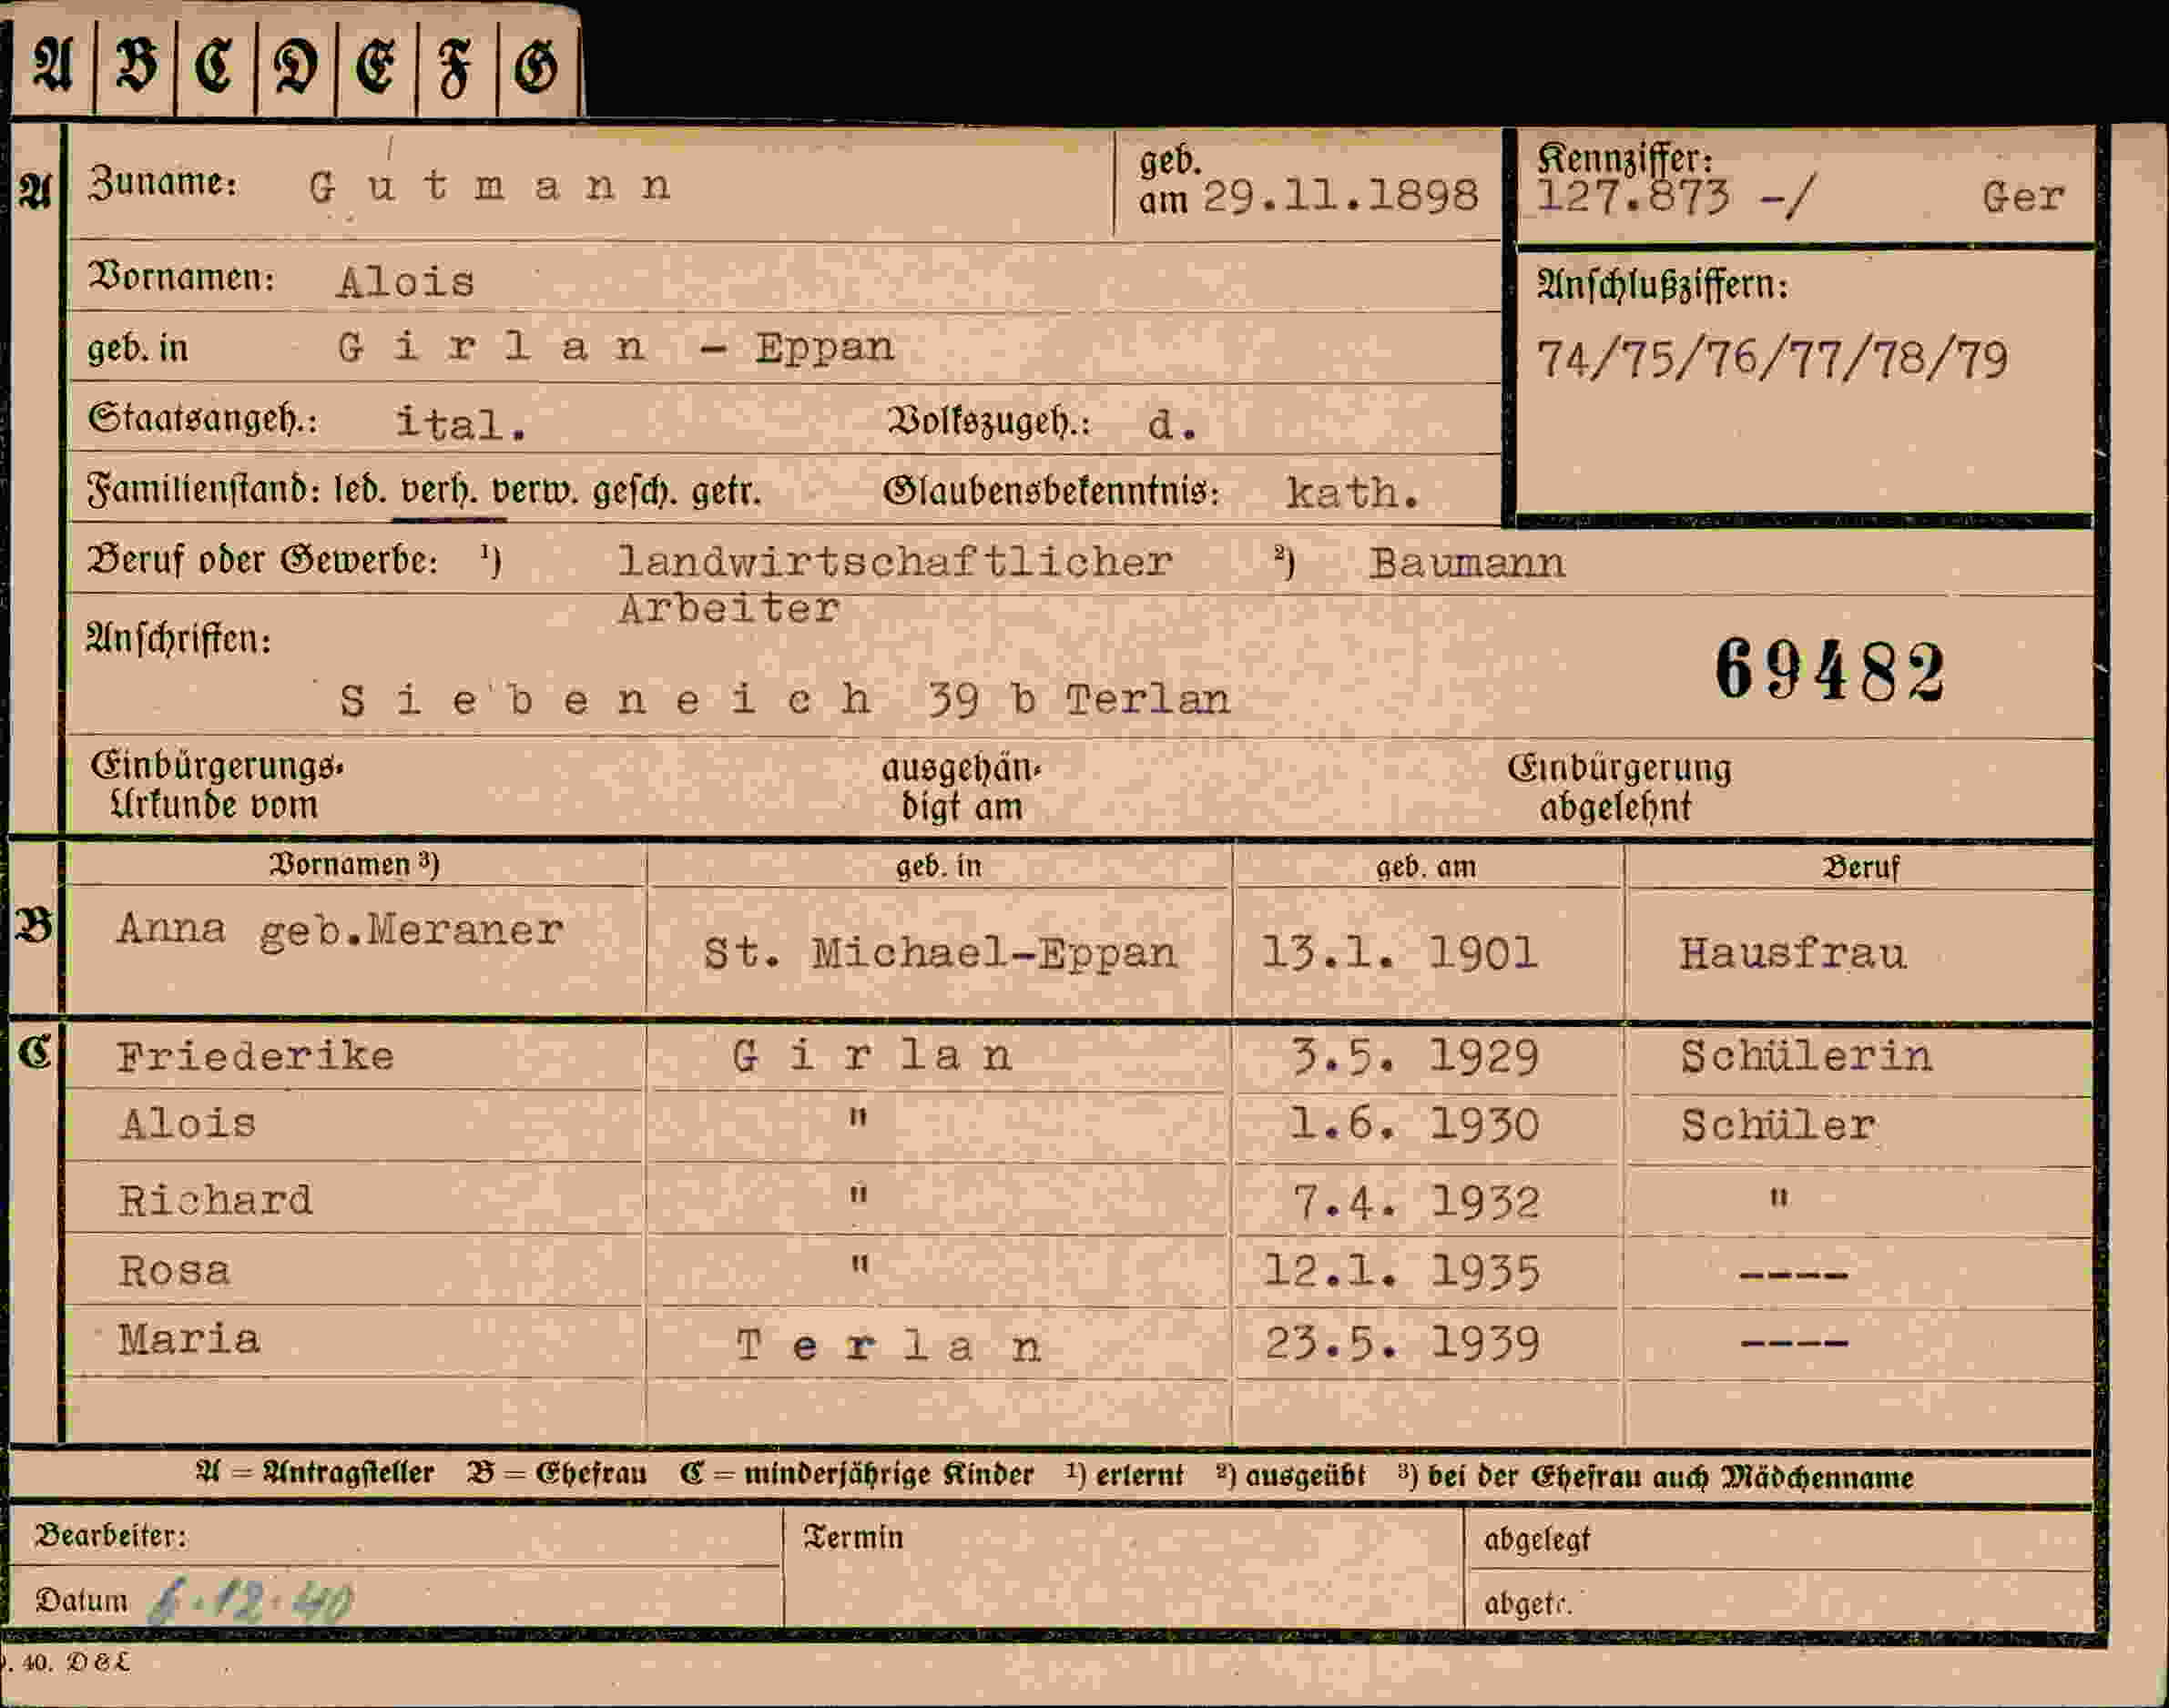 A B C D E F G
A Zuname: Gutmann geb. am 29.11.1898 Kennziffer: 127.873 -/ Ger
Vornamen: Alois
Anschlußziffern:
geb. in Girlan - Eppan
74/75/76/77/78/79
Staatsangeh.: ital. Volkszugeh.: d.
Familienstand: led. verh. verw. gesch. getr. Glaubensbekenntnis: kath.
Beruf oder Gewerbe: ¹) landwirtschaftlicher ²) Baumann
Arbeiter
Anschriften:
69482
Siebeneich 39 b Terlan
Einbürgerungs- ausgehän- Einbürgerung
Urkunde vom digt am abgelehnt
Vornamen ³) geb. in geb. am Beruf
B Anna geb.Meraner St. Michael-Eppan 13.1. 1901 Hausfrau
C Friederike Girlan 3.5. 1929 Schülerin
Alois " 1.6. 1930 Schüler
Richard " 7.4. 1932 "
Rosa " 12.1. 1935 ----
Maria Terlan 23.5. 1939 ----
A = Antragsteller B = Ehefrau C = minderjährige Kinder ¹) erlernt ²) ausgeübt ³) bei der Ehefrau auch Mädchenname
Bearbeiter: Termin abgelegt
Datum 6.12.40 abgetr.
. 40. D & L